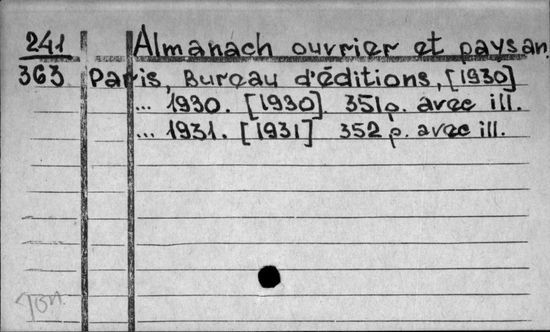 241 Almanach ouvrier et paysan.
363 Paris, Bureau d'éditions, [1930]
... 1930. [1930]. 351 p. avec ill.
... 1931. [1931] 352 p. avec ill.